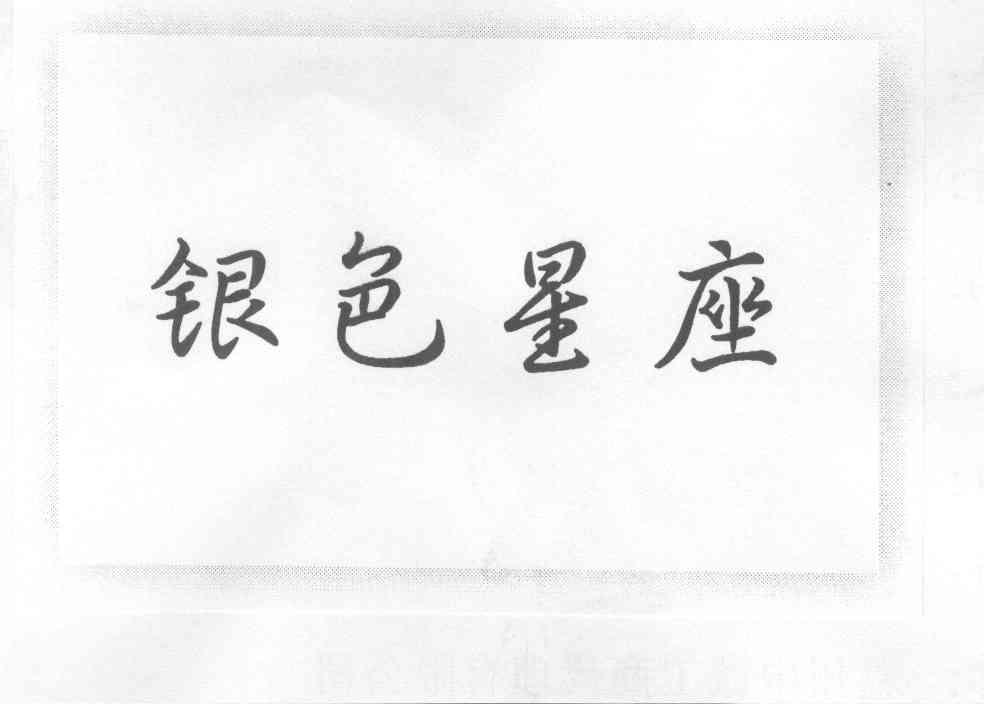 银色星座